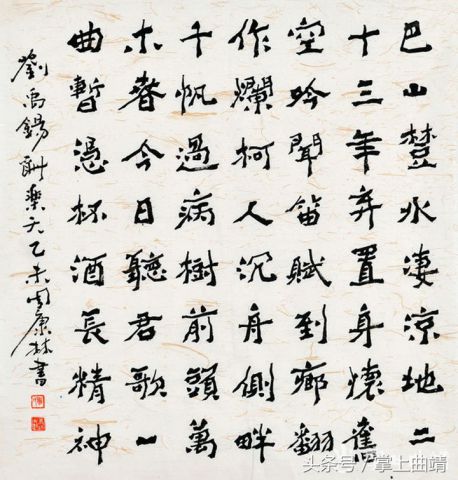 巴山楚水淒涼地二
十三年弃置身懷舊
空吟聞笛賦到鄉翻
作爛柯人沉舟側畔
千帆過病樹前頭萬
木春今日聽君歌一
曲暫憑杯酒長精神
劉禹錫酬樂天乙未周康林書
头条号/掌上曲靖